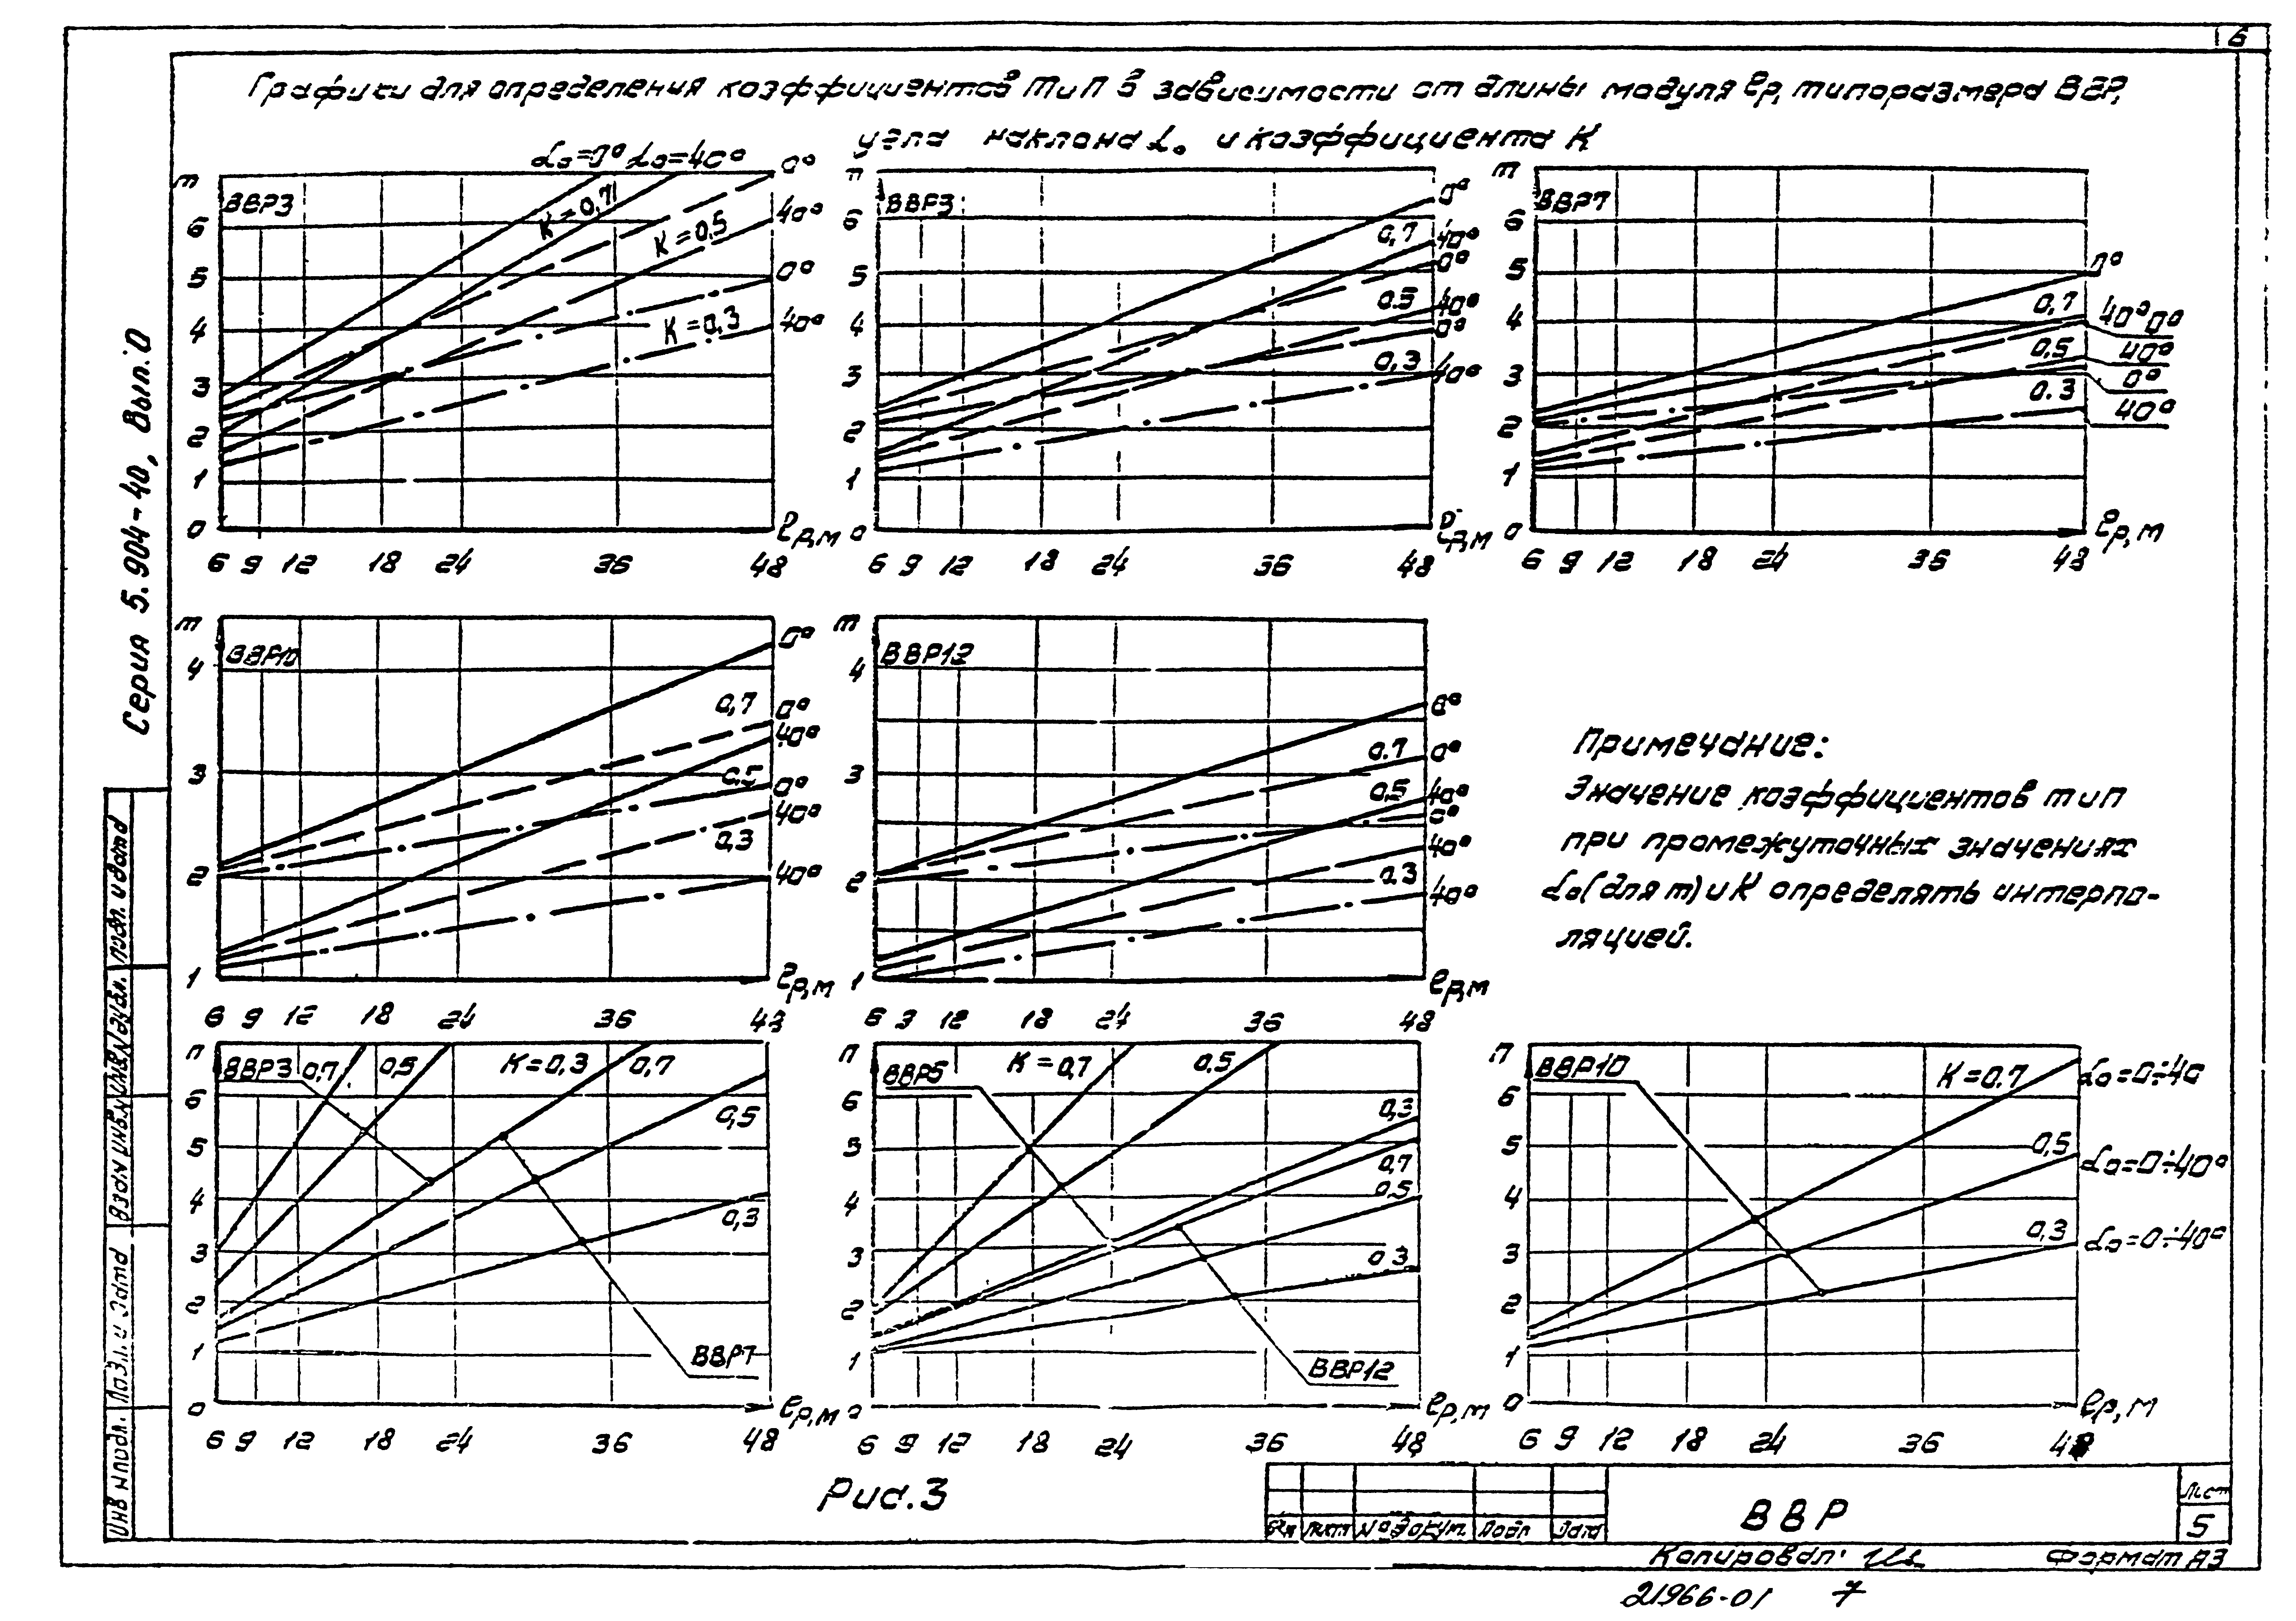 6
Графики для определения коэффициентов m и n в зависимости от длины модуля ℓр, типоразмера ВВР,
угла наклона α₀ и коэффициента К
α₀=0° α₀=40°
m
ВВР3
К=0,71
К=0,5
К=0,3
0°
40°
0°
40°
6
5
4
3
2
1
0
ℓр,м
6 9 12 18 24 36 48
m
ВВР3
0,7
0.5
0,3
0°
40°
0°
40°
0°
40°
6
5
4
3
2
1
0
ℓр,м
6 9 12 18 24 36 48
m
ВВР7
0,7
0,5
0.3
0°
40° 0°
40°
0°
40°
6
5
4
3
2
1
0
ℓр,м
6 9 12 18 24 36 48
m
ВВР10
0,7
0,5
0,3
0°
0°
40°
0°
40°
40°
4
3
2
1
ℓр,м
6 9 12 18 24 36 48
m
ВВР12
0.7
0,5
0,3
0°
0°
40°
0°
40°
40°
4
3
2
1
ℓр,м
6 9 12 18 24 36 48
Примечание:
Значение коэффициентов m и n
при промежуточных значениях
α₀(для m) и К определять интерпо-
ляцией.
n
ВВР3 0,7 0,5 К=0,3 0,7
0,5
0,3
ВВР7
6
5
4
3
2
1
0
ℓр,м
6 9 12 18 24 36 48
n
ВВР5 К=0,7 0,5
0,3
0,7
0,5
0.3
ВВР12
6
5
4
3
2
1
0
ℓр,м
6 9 12 18 24 36 48
n
ВВР10 К=0.7 α₀=0÷40
0,5 α₀=0÷40°
0,3 α₀=0÷40°
6
5
4
3
2
1
0
ℓр,м
6 9 12 18 24 36 48
Рис.3
Серия 5.904-40, Вып.0
Инв №подл. Подп. и дата Взам инв.№ Инв.№дубл. Подп. и дата
Лист №докум. Подп Дата
ВВР
Лист
5
Копировал:
Формат А3
21966-01 7